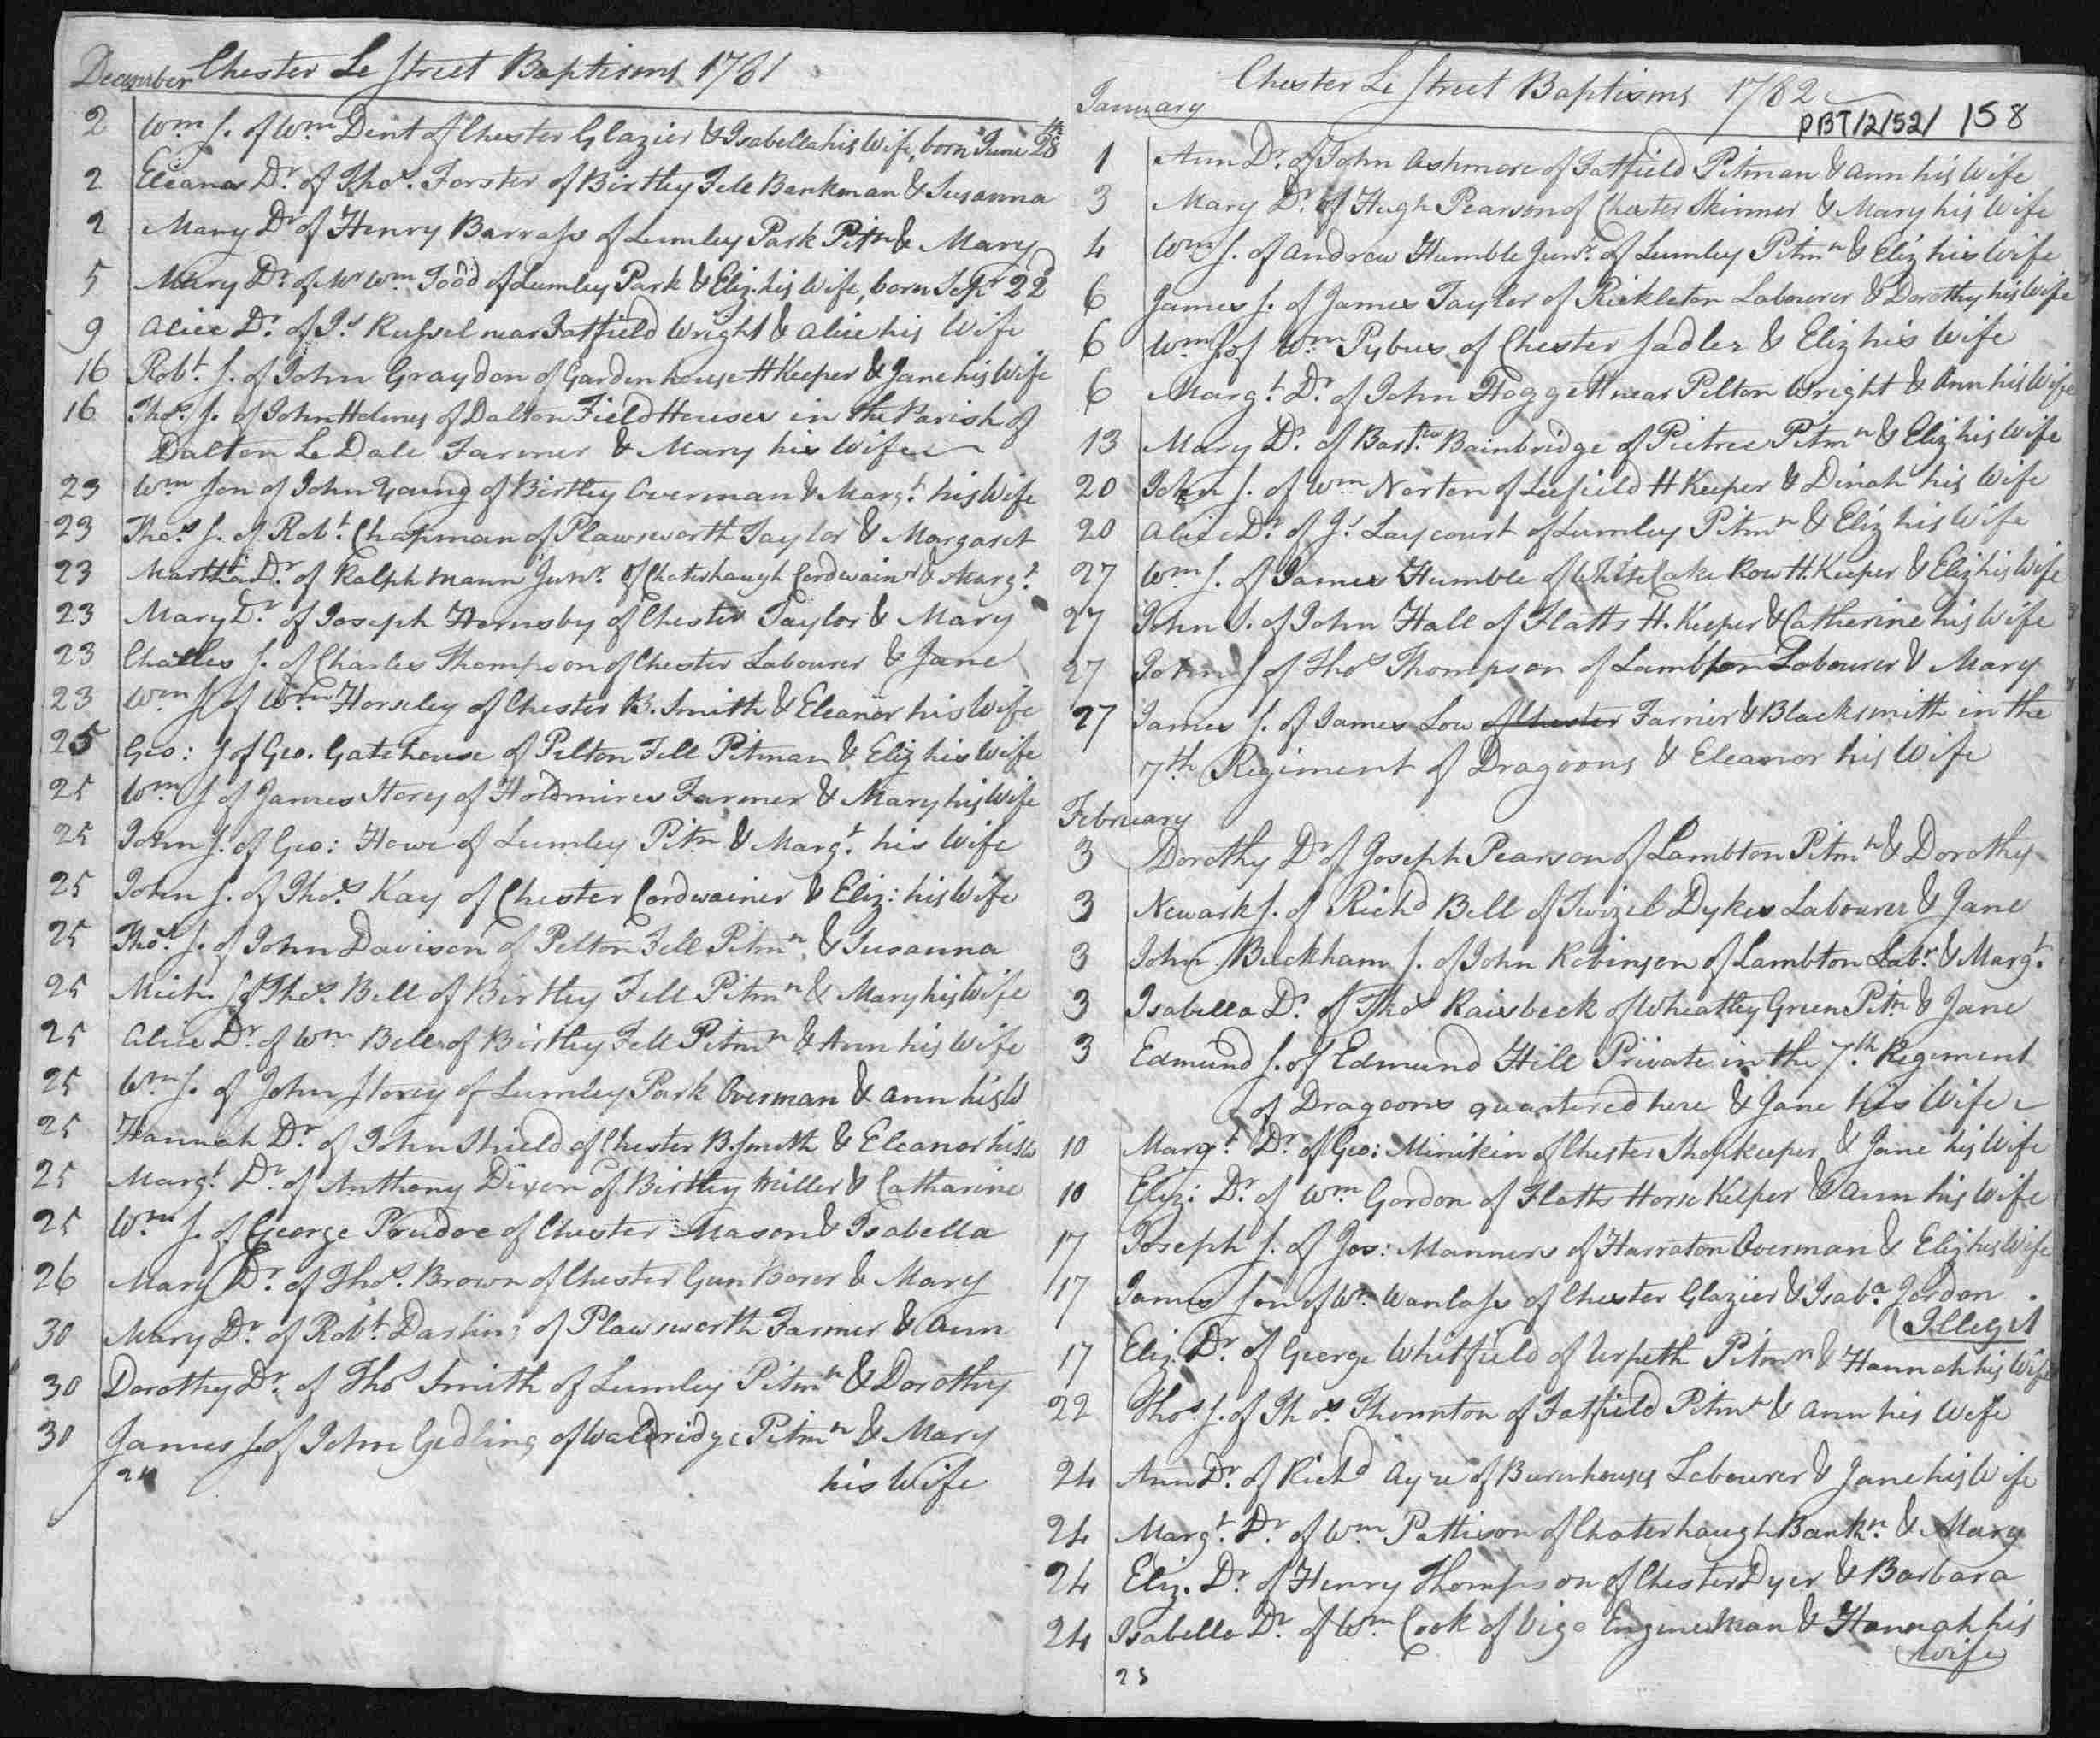 December Chester Le Street Baptisms 1781
2 Wm S. of Wm Dent of Chester Glazier & Isabella his Wife, born June 28th
2 Eleanor Dr. of Thos. Forster of Birtley Fell Bankman & Susanna
2 Mary Dr of Henry Barrass of Lumley Park Pitn & Mary
5 Mary Dr. of Mr Wm Todd of Lumley Park & Eliz. his Wife, born Sepr 22d
9 Alice Dr. of Js Russel near Fatfield Wright & Alice his Wife
16 Robt. S. of John Graydon of Garden house HKeeper & Jane his Wife
16 Thos. S. of John Holmes of Dalton Field Houses in the Parish of
Dalton Le Dale Farmer & Mary his Wife
23 Wm Son of John Young of Birtley Overman & Margt. his Wife
23 Thos. S. of Robt. Chapman of Plawsworth Taylor & Margaret
23 Martha Dr. of Ralph Mann Junr. of Chaterhaugh Cordwainr & Margt.
23 Mary Dr. of Joseph Hornsby of Chester Taylor & Mary
23 Charles S. of Charles Thompson of Chester Labourer & Jane
23 Wm S of Wm Horseley of Chester B. Smith & Eleanor his Wife
25 Geo: S of Geo. Gatehouse of Pelton Fell Pitman & Eliz his Wife
25 Wm S of James Story of Holdmires Farmer & Mary his Wife
25 John S. of Geo: Howe of Lumley Pitn & Margt. his Wife
25 John S. of Thos. Kay of Chester Cordwainer & Eliz: his Wife
25 Thos. S. of John Davison of Pelton Fell Pitmn. & Susanna
25 Mich. S of Thos. Bell of Birtley Fell Pitmn & Mary his Wife
25 Alice Dr. of Wm Bell of Birtley Fell Pitmn & Ann his Wife
25 Wm S. of John Storey of Lumley Park Overman & Ann his W
25 Hannah Dr. of John Shield of Chester B. Smith & Eleanor his W
25 Margt. Dr. of Anthony Dixon of Birtley Miller & Catharine
25 Wm S. of George Prudoe of Chester Mason & Isabella
26 Mary Dr. of Thos. Brown of Chester Gun Borer & Mary
30 Mary Dr. of Robt. Darling of Plawsworth Farmer & Ann
30 Dorothy Dr. of Thos Smith of Lumley Pitmn & Dorothy
30 James S. of John Gedling of Waldridge Pitmn & Mary
his Wife
Chester Le Street Baptisms 1782
January
PBT/2/52/ 158
1 Ann Dr. of John Ashmore of Fatfield Pitman & Ann his Wife
3 Mary Dr. of Hugh Pearson of Chester Skinner & Mary his Wife
4 Wm S. of Andrew Humble Junr. of Lumley Pitmn & Eliz his Wife
6 James S. of James Taylor of Rickleton Labourer & Dorothy his Wife
6 Wm S of Wm Pybus of Chester Sadler & Eliz his Wife
6 Margt. Dr. of John Hoggett near Pelton Wright & Ann his Wife
13 Mary Dr. of Bartw. Bainbridge of Pictree Pitmn & Eliz his Wife
20 John S. of Wm Norton of Leefield H Keeper & Dinah his Wife
20 Alice Dr. of Js. Laycourt of Lumley Pitmn & Eliz his Wife
27 Wm S. of James Humble of White Cake Row H. Keeper & Eliz his Wife
27 John S. of John Hall of Flatts H. Keeper & Catherine his Wife
27 John S of Thos Thompson of Lambton Labourer & Mary
27 James S. of James Low of Chester Farrier & Blacksmith in the
7th Regiment of Dragoons & Eleanor his Wife
February
3 Dorothy Dr of Joseph Pearson of Lambton Pitmn & Dorothy
3 Newark S. of Richd Bell of Twizel Dykes Labourer & Jane
3 John Beckham S. of John Robinson of Lambton Labr. & Margt.
3 Isabella Dr. of Thos Raisbeck of Wheatley Green Pitn & Jane
3 Edmund S. of Edmund Hill Private in the 7th Regiment
of Dragoons quartered here & Jane his Wife
10 Margt. Dr. of Geo: Minikin of Chester Shopkeeper & Jane his Wife
10 Eliz: Dr. of Wm Gordon of Flatts Horse Keeper & Ann his Wife
17 Joseph S. of Jos: Manners of Harraton Overman & Eliz his Wife
17 James Son of Wm. Wanlass of Chester Glazier & Isaba Jordon
Illegit
17 Eliz. Dr. of George Whitfield of Urpeth Pitmn & Hannah his Wife
22 Thos. S. of Thos. Thornton of Fatfield Pitmn & Ann his Wife
24 Ann Dr. of Richd Ayre of Burnhouses Labourer & Jane his Wife
24 Margt. Dr. of Wm Pattison of Chaterhaugh Bankn. & Mary
24 Eliz. Dr. of Henry Thompson of Chester Dyer & Barbara
24 Isabella Dr. of Wm Cook of Vigo Engine Man & Hannah his
Wife